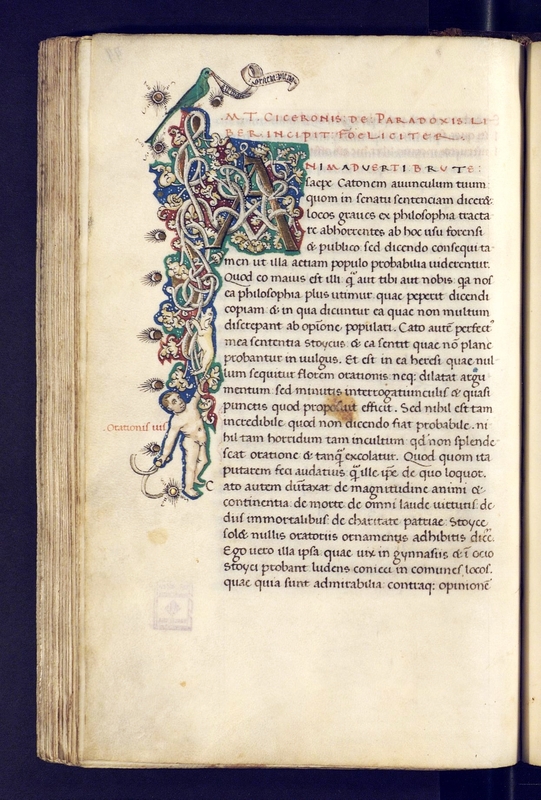 M. T. CICERONIS: DE: PARADOXIS: LI
BER. INCIPIT. FOELICITER.
A
NIMADVERTI BRUTE:
saepe Catonem auunculum tuum:
quom in senatu sentenciam diceret:
locos graues ex philosophia tracta
re abhorrentes ab hoc usu forensi
& publico sed dicendo consequi ta-
men ut illa aetiam populo probabilia uiderentur.
Quod eo maius est illi q̄ aut tibi aut nobis qa nos
ea philosophia plus utimur quae peperit dicendi
copiam & in qua dicuntur ea quae non multum
discrepant ab opiōne populari. Cato autē perfect⁹
mea sententia stoycus & ea sentit quae nō plane
probantur in uulgus. Et est in ea heresi quae nul-
lum sequitur florem orationis: neq; dilatat argu
mentum sed minutis interrogatiunculis & quasi
punctis quod proposuit efficit. Sed nihil est tam
incredibile quod non dicendo fiat probabile. ni-
hil tam horridum tam incultum qd non splende
scat oratione & tanq̄ excolatur. Quod quom ita
putarem feci audatius q̄ ille ip̄e de quo loquor.
Orationis uis
C
ato autem dūtaxat de magnitudine animi &
continentia: de morte de omni laude uirtutis: de
diis immortalibus de charitate patriae Stoyce
solet nullis oratoriis ornamentis adhibitis dicē.
Ego uero illa ipsa quae uix in gymnasiis & ī ocio
stoyci probant ludens conieci in comunes locos.
quae quia sunt admirabilia: contraq; opinionē